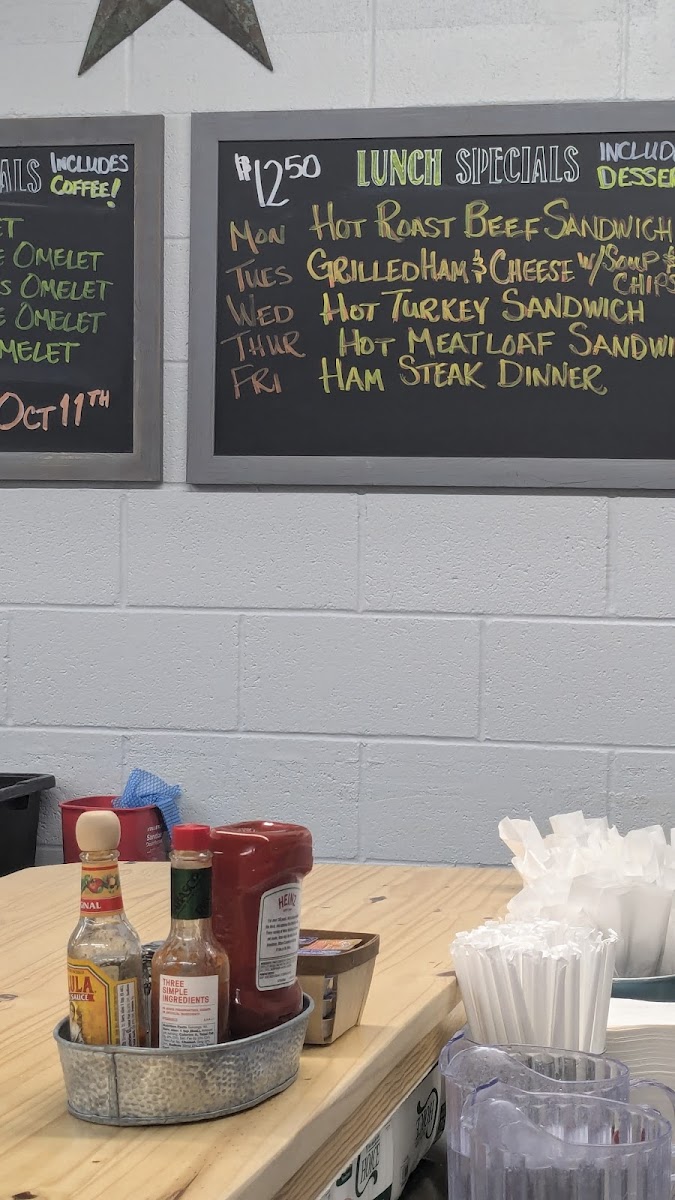 INCLUDES
COFFEE!
OMELET
OMELET
OMELET
OCT 11TH
$12.50 LUNCH SPECIALS
MON HOT ROAST BEEF SANDWICH
TUES GRILLED HAM & CHEESE W/ SOUP &
CHIPS
WED HOT TURKEY SANDWICH
THUR HOT MEATLOAF
FRI HAM STEAK DINNER
HEINZ
THREE
SIMPLE
INGREDIENTS
SAUCE